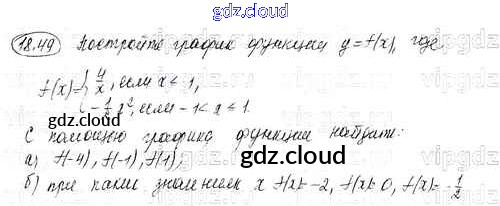 gdz.cloud
gdz.cloud
18.49 Постройте график функции y=f(x), где
f(x)= { 4/x, если x < -1,
-1/2 x², если -1 < x ≤ 1.
С помощью графика функции найдите:
а) f(-4), f(-1), f(1),
gdz.cloud
б) при каких значениях x f(x)= -2, f(x)= 0, f(x)= -1/2
gdz.cloud